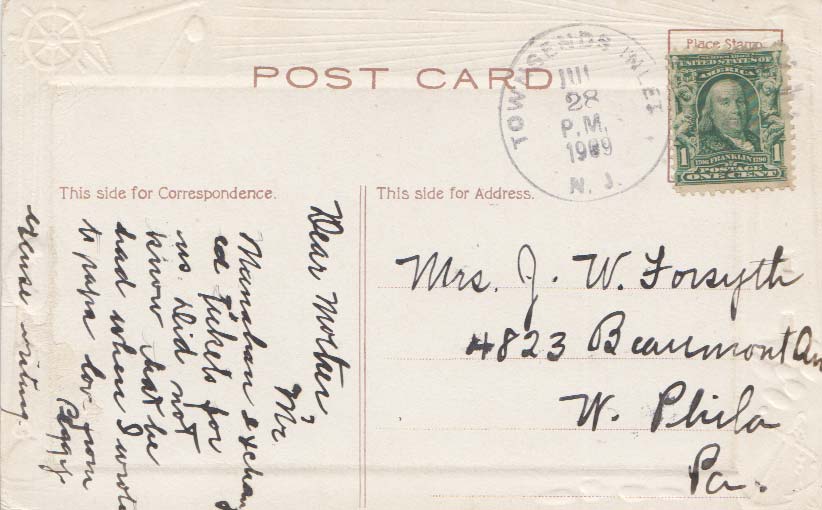 POST CARD
Place Stamp
TOWNSENDS INLET
28
P.M.
1909
N. J.
UNITED STATES OF
AMERICA
1 1706 FRANKLIN 1790 1
POSTAGE
ONE CENT
This side for Correspondence.
This side for Address.
Dear Mother,
Mr.
Manahan exchang
ed tickets for
us. Did not
know that he
had when I wrote
to papa lov from
Peggy
excuse writing.
Mrs. J. W. Forsyth
4823 Beaumont Av
W. Phila
Pa.